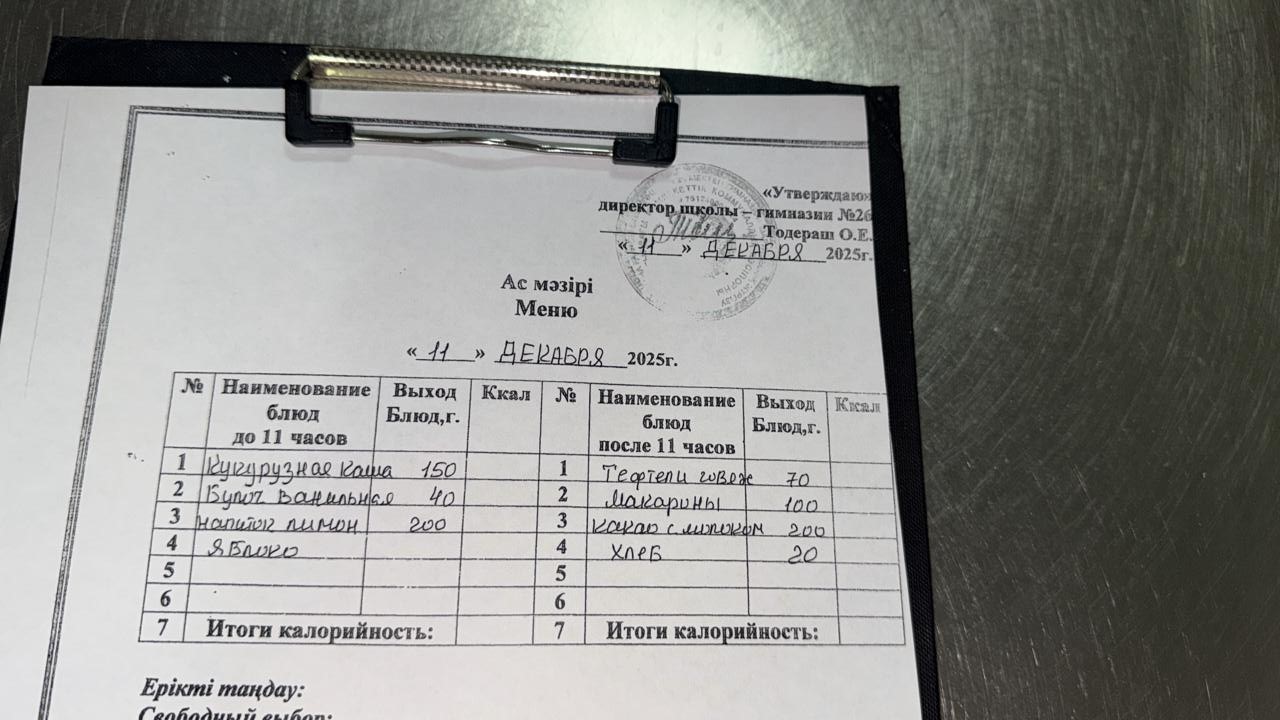 «Утверждаю
директор школы – гимназии №26
Тодераш О.Е.
« 11 » ДЕКАБРЯ 2025г.
Ас мәзірі
Меню
« 11 » ДЕКАБРЯ 2025г.
№ Наименование блюд до 11 часов Выход Блюд,г. Ккал № Наименование блюд после 11 часов Выход Блюд,г. Ккал
1 Кукурузная каша 150 1 Тефтели говяж 70
2 Булоч Ванильная 40 2 Макароны 100
3 напиток лимон 200 3 какао с молоком 200
4 яблоко 4 хлеб 20
5 5
6 6
7 Итоги калорийность: 7 Итоги калорийность:
Ерікті таңдау:
Свободный выбор: